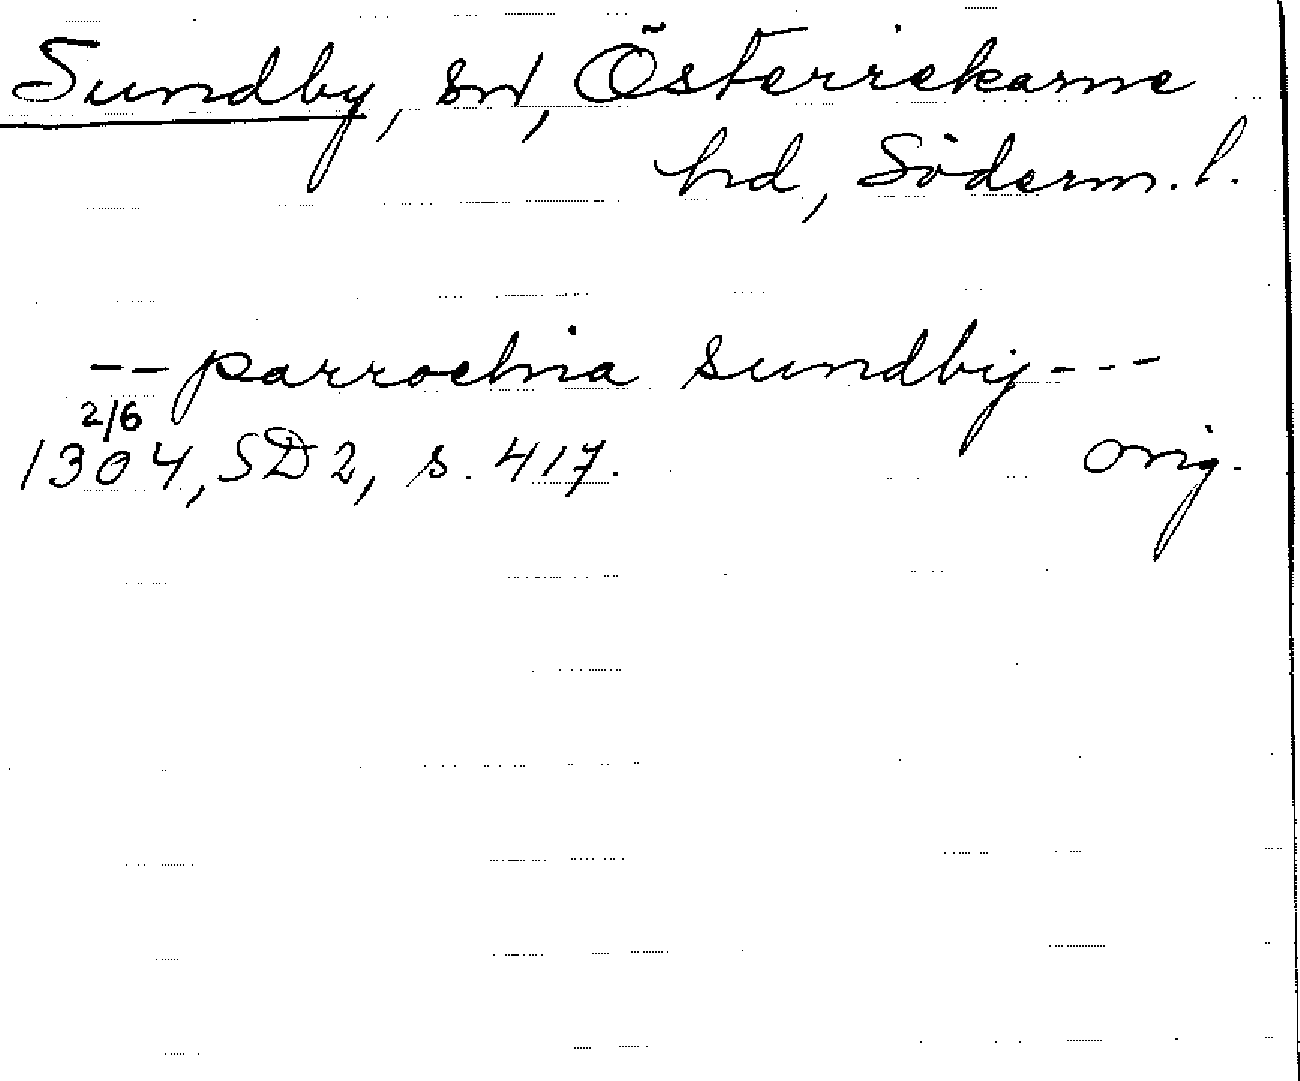 Sundby, sn, Österrekarne
hd, Söderm. l.
-- parrochia sundby ---
2/6
1304, SD 2, s. 417. orig.